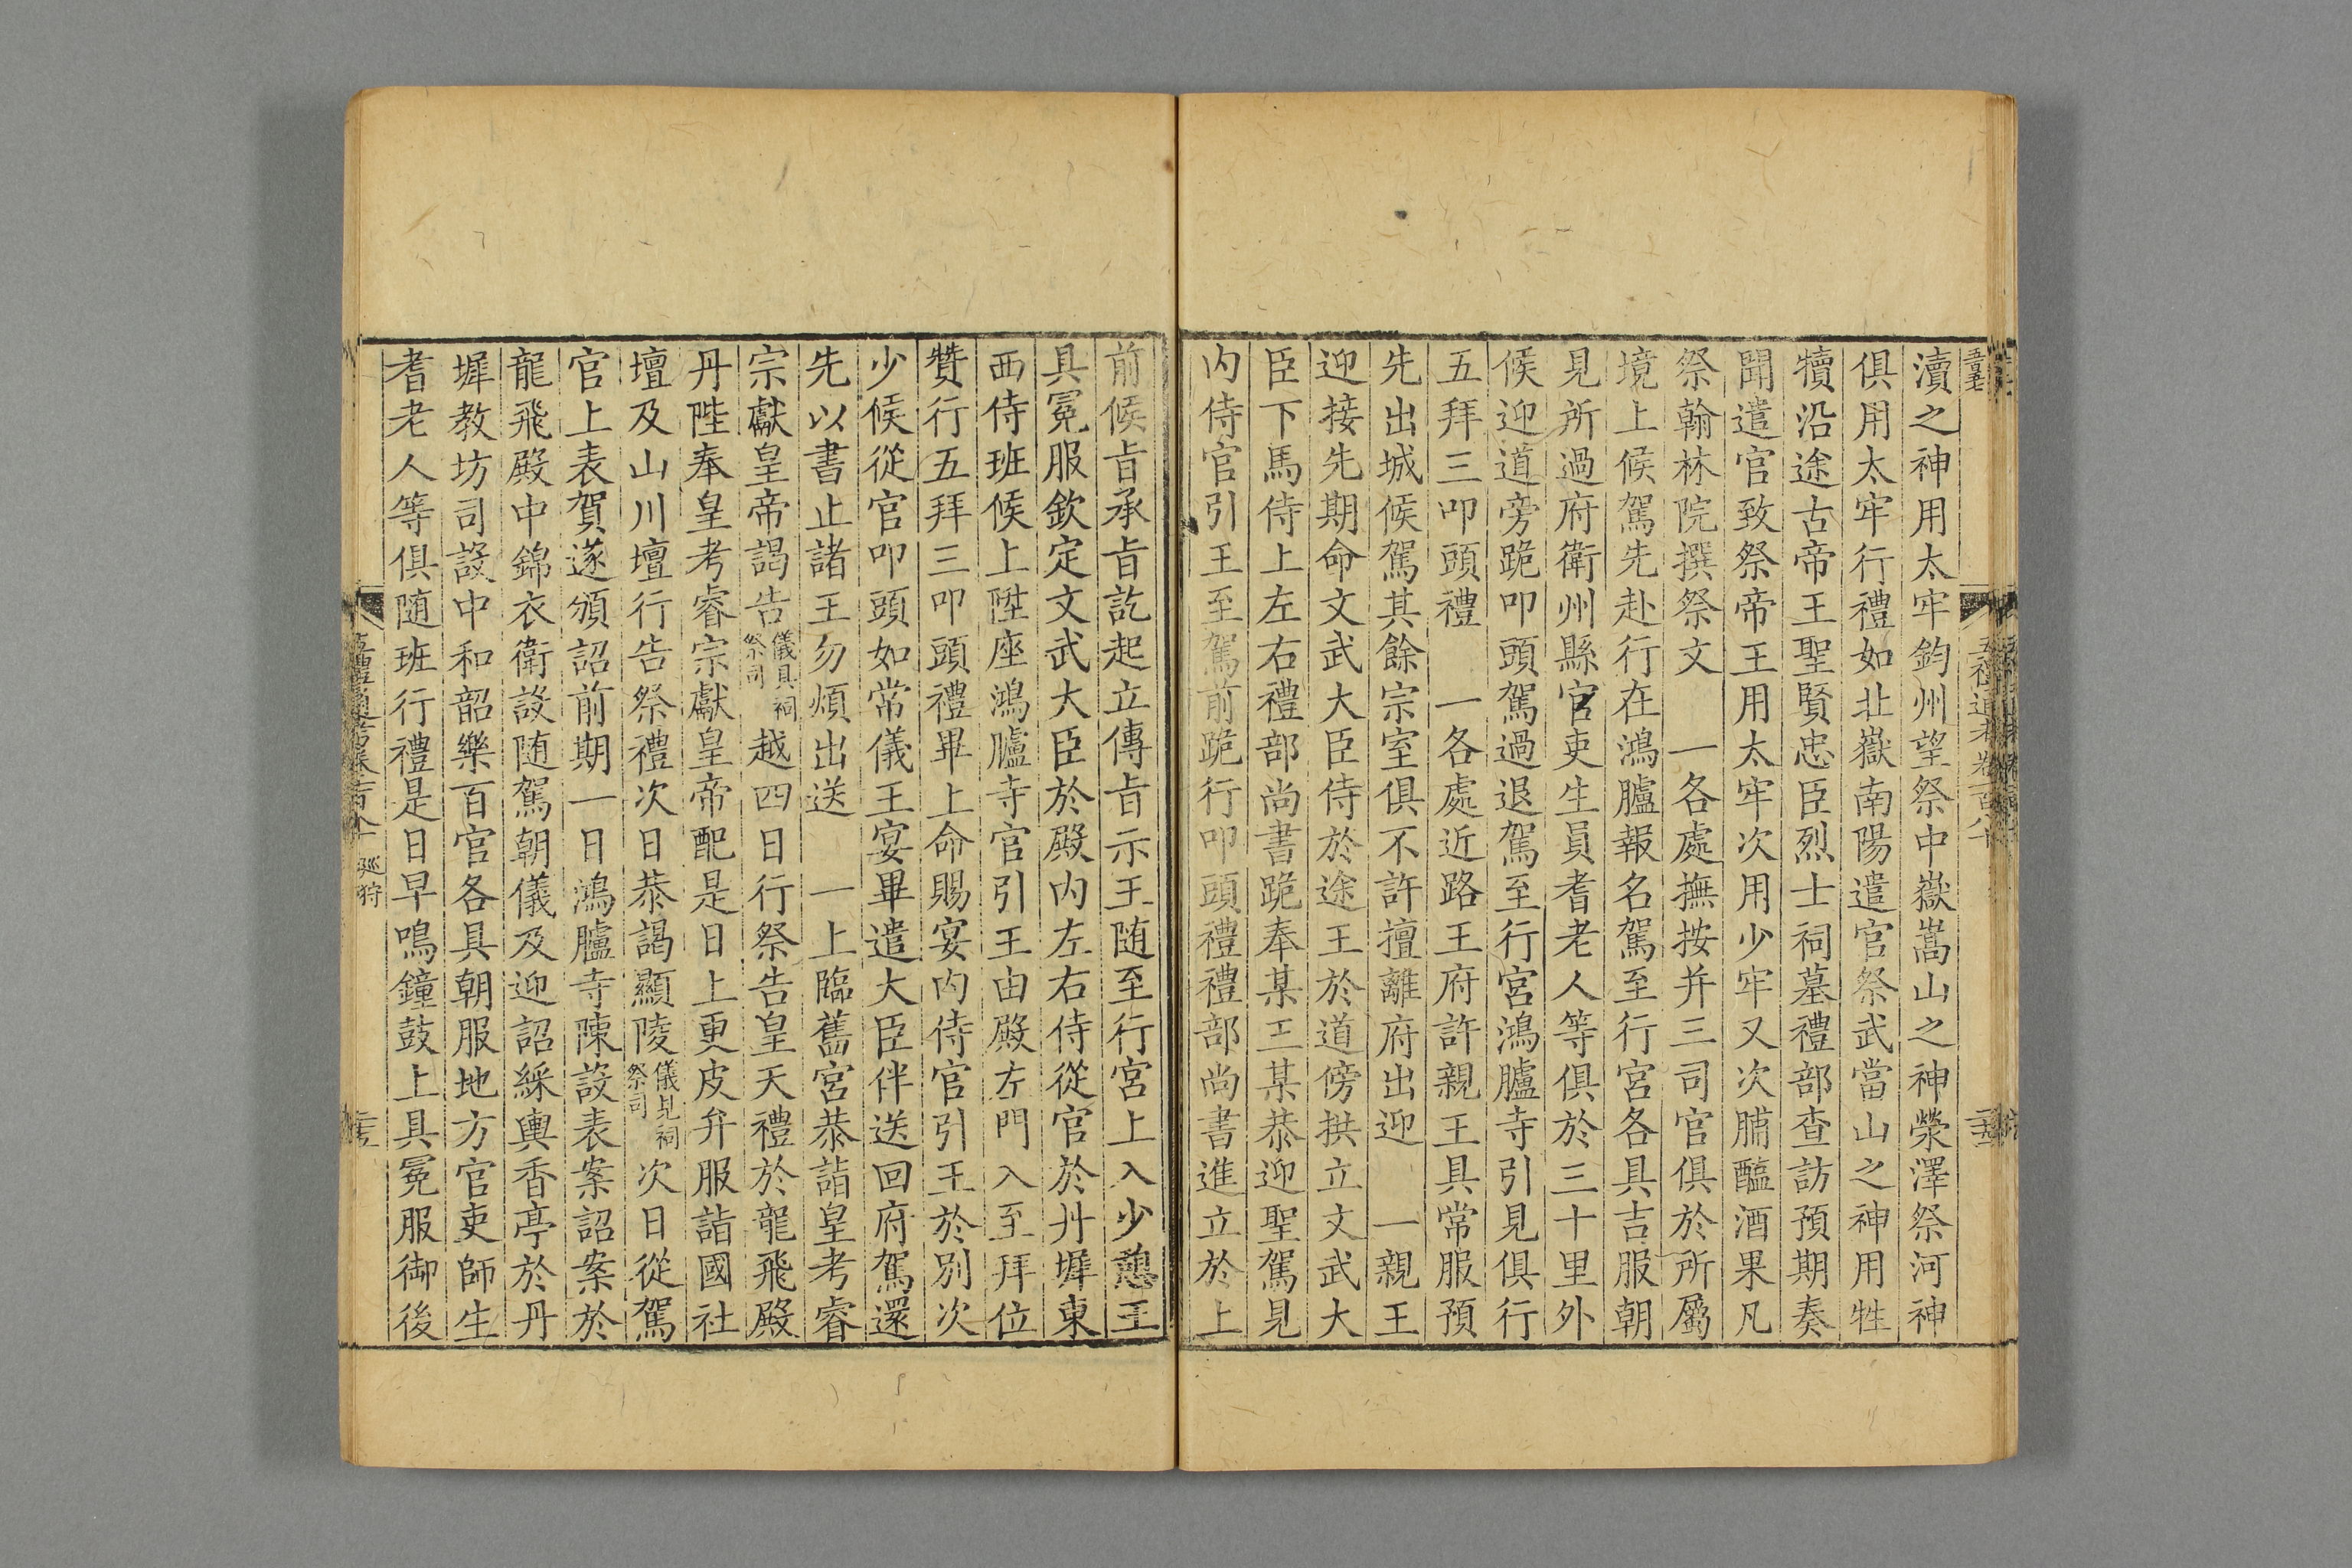 瀆之神用太牢鈞州望祭中嶽嵩山之神滎澤祭河神
俱用太牢行禮如北嶽南陽遣官祭武當山之神用牲
犢沿途古帝王聖賢忠臣烈士祠墓禮部查訪預期奏
聞遣官致祭帝王用太牢次用少牢又次脯醢酒果凡
祭翰林院撰祭文　一各處撫按并三司官俱於所屬
境上候駕先赴行在鴻臚報名駕至行宮各具吉服朝
見所過府衛州縣官吏生員耆老人等俱於三十里外
候迎道旁跪叩頭駕過退駕至行宮鴻臚寺引見俱行
五拜三叩頭禮　一各處近路王府許親王具常服預
先出城候駕其餘宗室俱不許擅離府出迎　一親王
迎接先期命文武大臣侍於途王於道傍拱立文武大
臣下馬侍上左右禮部尚書跪奉某王某恭迎聖駕見
内侍官引王至駕前跪行叩頭禮禮部尚書進立於上
前候旨承旨訖起立傳旨示王随至行宮上入少憩王
具冕服欽定文武大臣於殿内左右侍從官於丹墀東
西侍班候上陞座鴻臚寺官引王由殿左門入至拜位
贊行五拜三叩頭禮畢上命賜宴内侍官引王於別次
少候從官叩頭如常儀王宴畢遣大臣伴送回府駕還
先以書止諸王勿煩出送　一上臨舊宮恭詣皇考睿
宗獻皇帝謁告儀具祠祭司越四日行祭告皇天禮於龍飛殿
丹陛奉皇考睿宗獻皇帝配是日上更皮弁服詣國社
壇及山川壇行告祭禮次日恭謁顯陵儀見祠祭司次日從駕
官上表賀遂頒詔前期一日鴻臚寺陳設表案詔案於
龍飛殿中錦衣衛設随駕朝儀及迎詔綵輿香亭於丹
墀教坊司設中和韶樂百官各具朝服地方官吏師生
耆老人等俱随班行禮是日早鳴鐘鼓上具冕服御後
巡狩